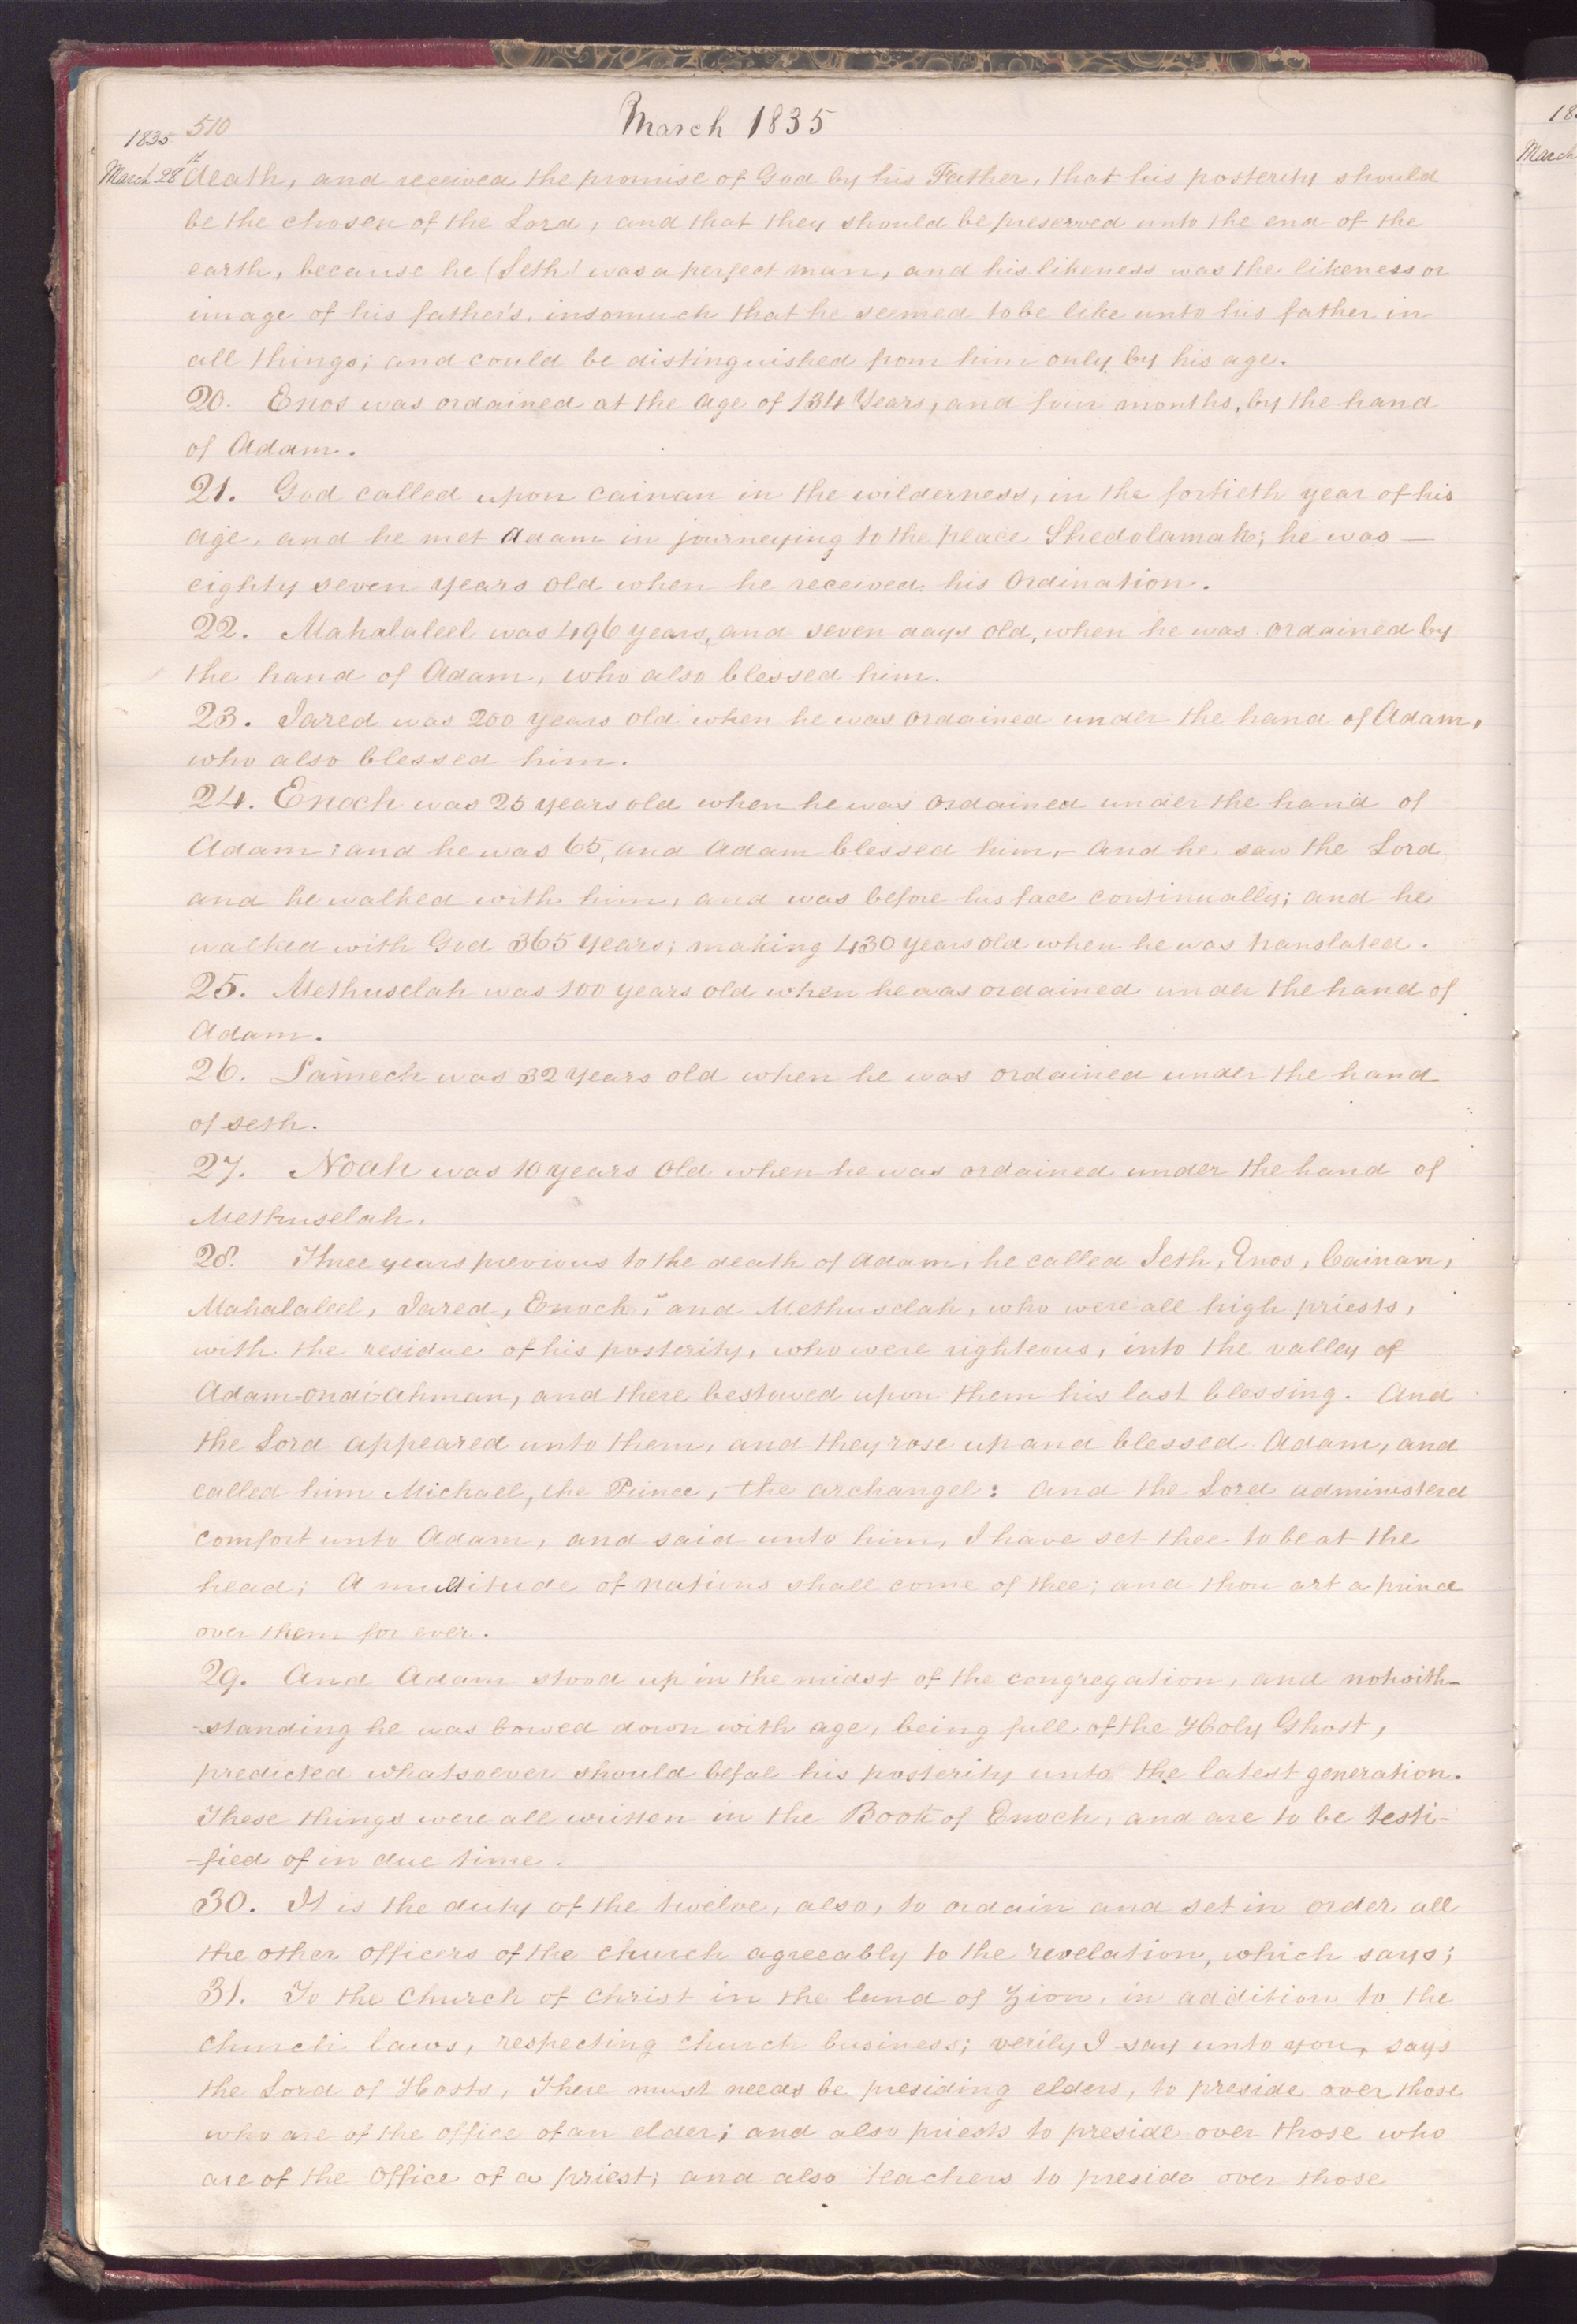 510
March 1835
1835
March 28th
death, and received the promise of God by his Father, that his posterity should
be the chosen of the Lord, and that they should be preserved unto the end of the
earth, because he (Seth) was a perfect man, and his likeness was the likeness or
image of his father's, insomuch that he seemed to be like unto his father in
all things; and could be distinguished from him only by his age.
20. Enos was ordained at the age of 134 Years, and four months, by the hand
of Adam.
21. God called upon Cainan in the wilderness, in the fortieth year of his
age, and he met Adam in journeying to the place Shedolamak; he was —
eighty seven years old when he received his Ordination.
22. Mahalaleel was 496 years, and seven days old, when he was ordained by
the hand of Adam, who also blessed him.
23. Jared was 200 years old when he was ordained under the hand of Adam,
who also blessed him.
24. Enoch was 25 years old when he was ordained under the hand of
Adam; and he was 65, and Adam blessed him,- And he saw the Lord
and he walked with him, and was before his face continually; and he
walked with God 365 Years; making 430 years old when he was translated.
25. Methuselah was 100 years old when he was ordained under the hand of
Adam.
26. Lamech was 32 years old when he was ordained under the hand
of Seth.
27. Noah was 10 years old when he was ordained under the hand of
Methuselah.
28. Three years previous to the death of Adam, he called Seth, Enos, Cainan,
Mahalaleel, Jared, Enoch, and Methuselah, who were all high priests,
with the residue of his posterity, who were righteous, into the valley of
Adam-ondi-Ahman, and there bestowed upon them his last blessing. And
the Lord appeared unto them, and they rose up and blessed Adam, and
called him Michael, the Prince, the archangel: And the Lord administerd
comfort unto Adam, and said unto him, I have set thee to be at the
head; A multitude of nations shall come of thee; and thou art a prince
over them for ever.
29. And Adam stood up in the midst of the congregation, and notwith-
-standing he was bowed down with age, being full of the Holy Ghost,
predicted whatsoever should befal his posterity unto the latest generation.
These things were all written in the Book of Enoch, and are to be testi-
-fied of in due time.
30. It is the duty of the twelve, also, to ordain and set in order all
the other officers of the church agreeably to the revelation, which says;
31. To the Church of Christ in the land of Zion, in addition to the
church laws, respecting church business; verily I say unto you, says
the Lord of Hosts, There must needs be presiding elders, to preside over those
who are of the office of an elder; and also priests to preside over those who
are of the office of a priest; and also teachers to preside over those
18
March